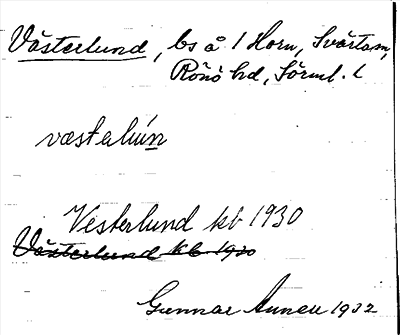 Västerlund, bs å 1 Horn, Svärtam,
Rönö hd, Sörml. l
væstaḷuṉ́
Vesterlund kb 1930
Västerlund kb 1930
Gunnar Annell 1932